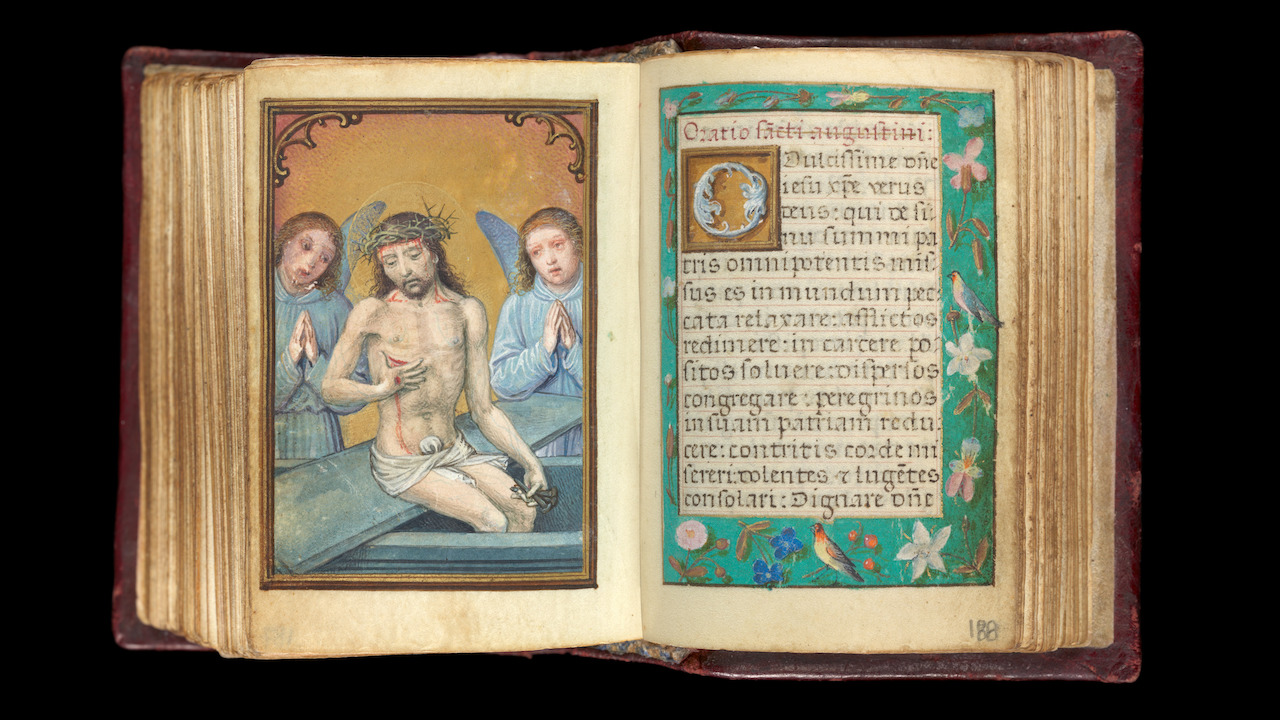 Oratio sācti augustini:
O Dulcissime dn̄e
iesu xp̄e verus
deus: qui de si⸗
nu summi pa
tris omnipotentis mis⸗
sus es in mundum pec⸗
cata relaxare: afflictos
redimere: in carcere po⸗
sitos soluere: dispersos
congregare: peregrinos
in suam patriam redu⸗
cere: contritis corde mi
sereri: dolentes ⁊ lugētes
consolari: Dignare dn̄e
188